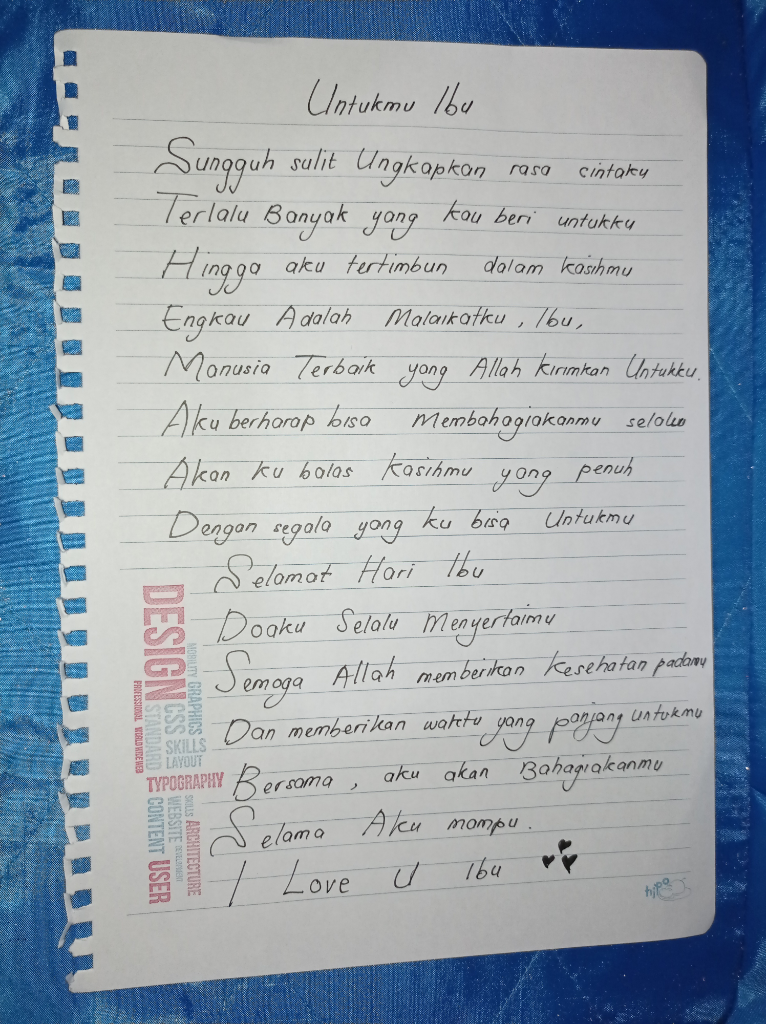 Untukmu Ibu
Sungguh sulit Ungkapkan rasa cintaku
Terlalu Banyak yang kau beri untukku
Hingga aku tertimbun dalam kasihmu
Engkau Adalah Malaikatku, Ibu,
Manusia Terbaik yang Allah kirimkan Untukku.
Aku berharap bisa Membahagiakanmu selalu
Akan ku balas kasihmu yang penuh
Dengan segala yang ku bisa Untukmu
Selamat Hari Ibu
Doaku Selalu Menyertaimu
Semoga Allah memberikan kesehatan padamu
Dan memberikan waktu yang panjang untukmu
Bersama, aku akan Bahagiakanmu
Selama Aku mampu.
I Love U Ibu
DESIGN
GRAPHICS
CSS
SKILLS
LAYOUT
STANDARD
PROFESSIONAL
TYPOGRAPHY
SKILLS
ARCHITECTURE
WEBSITE
DEVELOPMENT
CONTENT
USER